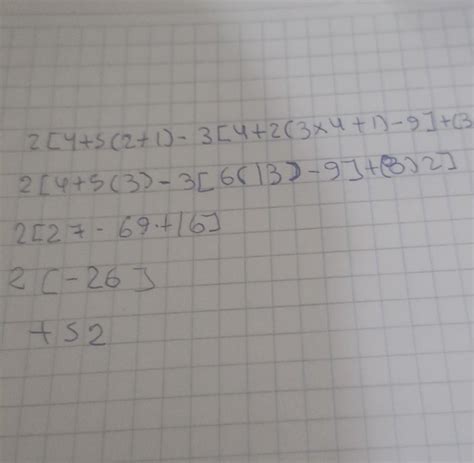 2[4+5(2+1)-3[4+2(3×4+1)-9]+(3
2[4+5(3)-3[6(13)-9]+(8)2]
2[27-69+16]
2[-26]
+52